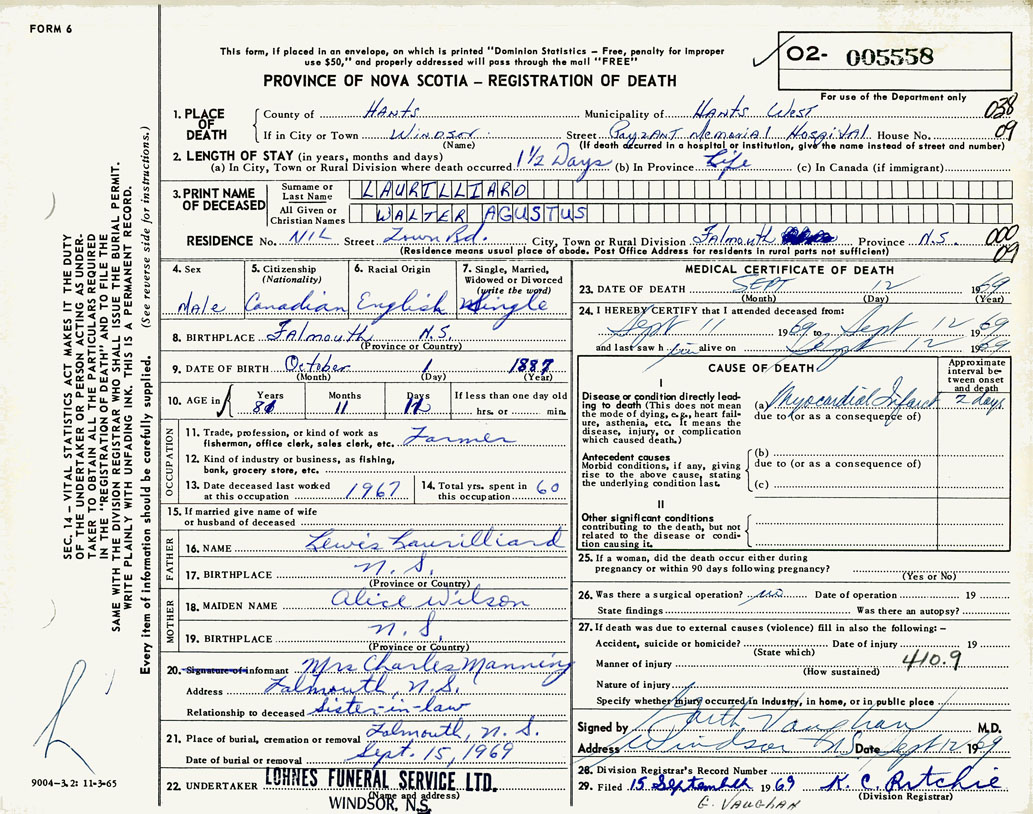 FORM 6
This form, if placed in an envelope, on which is printed "Dominion Statistics – Free, penalty for improper
use $50," and properly addressed will pass through the mail "FREE"
PROVINCE OF NOVA SCOTIA – REGISTRATION OF DEATH
O2- 005558
For use of the Department only
1. PLACE OF DEATH
County of HANTS Municipality of HANTS WEST 038
If in City or Town Windsor Street Payzant Memorial Hospital House No. 09
(Name) (If death occurred in a hospital or institution, give the name instead of street and number)
2. LENGTH OF STAY (in years, months and days)
(a) In City, Town or Rural Division where death occurred 1 1/2 Days (b) In Province Life (c) In Canada (if immigrant)
3. PRINT NAME OF DECEASED
Surname or Last Name LAURILLIARD
All Given or Christian Names WALTER AGUSTUS
RESIDENCE No. NIL Street Town Rd. City, Town or Rural Division Falmouth Province N.S. 000
(Residence means usual place of abode. Post Office Address for residents in rural parts not sufficient) 09
4. Sex Male
5. Citizenship (Nationality) Canadian
6. Racial Origin English
7. Single, Married, Widowed or Divorced (write the word) Single
8. BIRTHPLACE Falmouth N.S.
(Province or Country)
9. DATE OF BIRTH October 1 1887
(Month) (Day) (Year)
10. AGE in Years 81 Months 11 Days 11 If less than one day old
hrs. or min.
OCCUPATION
11. Trade, profession, or kind of work as
fisherman, office clerk, sales clerk, etc. Farmer
12. Kind of industry or business, as fishing,
bank, grocery store, etc.
13. Date deceased last worked
at this occupation 1967
14. Total yrs. spent in
this occupation 60
15. If married give name of wife
or husband of deceased
FATHER
16. NAME Lewis Laurilliard
17. BIRTHPLACE N.S.
(Province or Country)
MOTHER
18. MAIDEN NAME Alice Wilson
19. BIRTHPLACE N.S.
(Province or Country)
20. Signature of informant Mrs Charles Manning
Address Falmouth, N.S.
Relationship to deceased Sister-in-law
21. Place of burial, cremation or removal Falmouth, N.S.
Date of burial or removal Sept. 15, 1969
22. UNDERTAKER LOHNES FUNERAL SERVICE LTD.
(Name and address)
WINDSOR, N.S.
MEDICAL CERTIFICATE OF DEATH
23. DATE OF DEATH SEPT 12 1969
(Month) (Day) (Year)
24. I HEREBY CERTIFY that I attended deceased from:
Sept 11 1969 to Sept 12 1969
and last saw him alive on Sept 12 1969
CAUSE OF DEATH
Approximate interval between onset and death
I
Disease or condition directly leading to death (This does not mean the mode of dying, e.g., heart failure, asthenia, etc. It means the disease, injury, or complication which caused death.)
(a) Myocardial Infarct 2 days
due to (or as a consequence of)
Antecedent causes
Morbid conditions, if any, giving rise to the above cause, stating the underlying condition last.
(b)
due to (or as a consequence of)
(c)
II
Other significant conditions
contributing to the death, but not related to the disease or condition causing it.
25. If a woman, did the death occur either during
pregnancy or within 90 days following pregnancy?
(Yes or No)
26. Was there a surgical operation? no Date of operation 19
State findings Was there an autopsy?
27. If death was due to external causes (violence) fill in also the following: –
Accident, suicide or homicide? Date of injury 19
(State which)
Manner of injury 410.9
(How sustained)
Nature of injury
Specify whether injury occurred in Industry, in home, or in public place
Signed by Garth Vaughan M.D.
Address Windsor NS Date Sept 12 1969
28. Division Registrar's Record Number
29. Filed 15 September 1969 K. C. Ritchie
(Division Registrar)
G. VAUGHAN
SEC. 14 – VITAL STATISTICS ACT MAKES IT THE DUTY
OF THE UNDERTAKER OR PERSON ACTING AS UNDER-
TAKER TO OBTAIN ALL THE PARTICULARS REQUIRED
IN THE "REGISTRATION OF DEATH" AND TO FILE THE
SAME WITH THE DIVISION REGISTRAR WHO SHALL ISSUE THE BURIAL PERMIT.
WRITE PLAINLY WITH UNFADING INK. THIS IS A PERMANENT RECORD.
Every item of information should be carefully supplied. (See reverse side for instructions.)
9004-3.2: 11-3-65